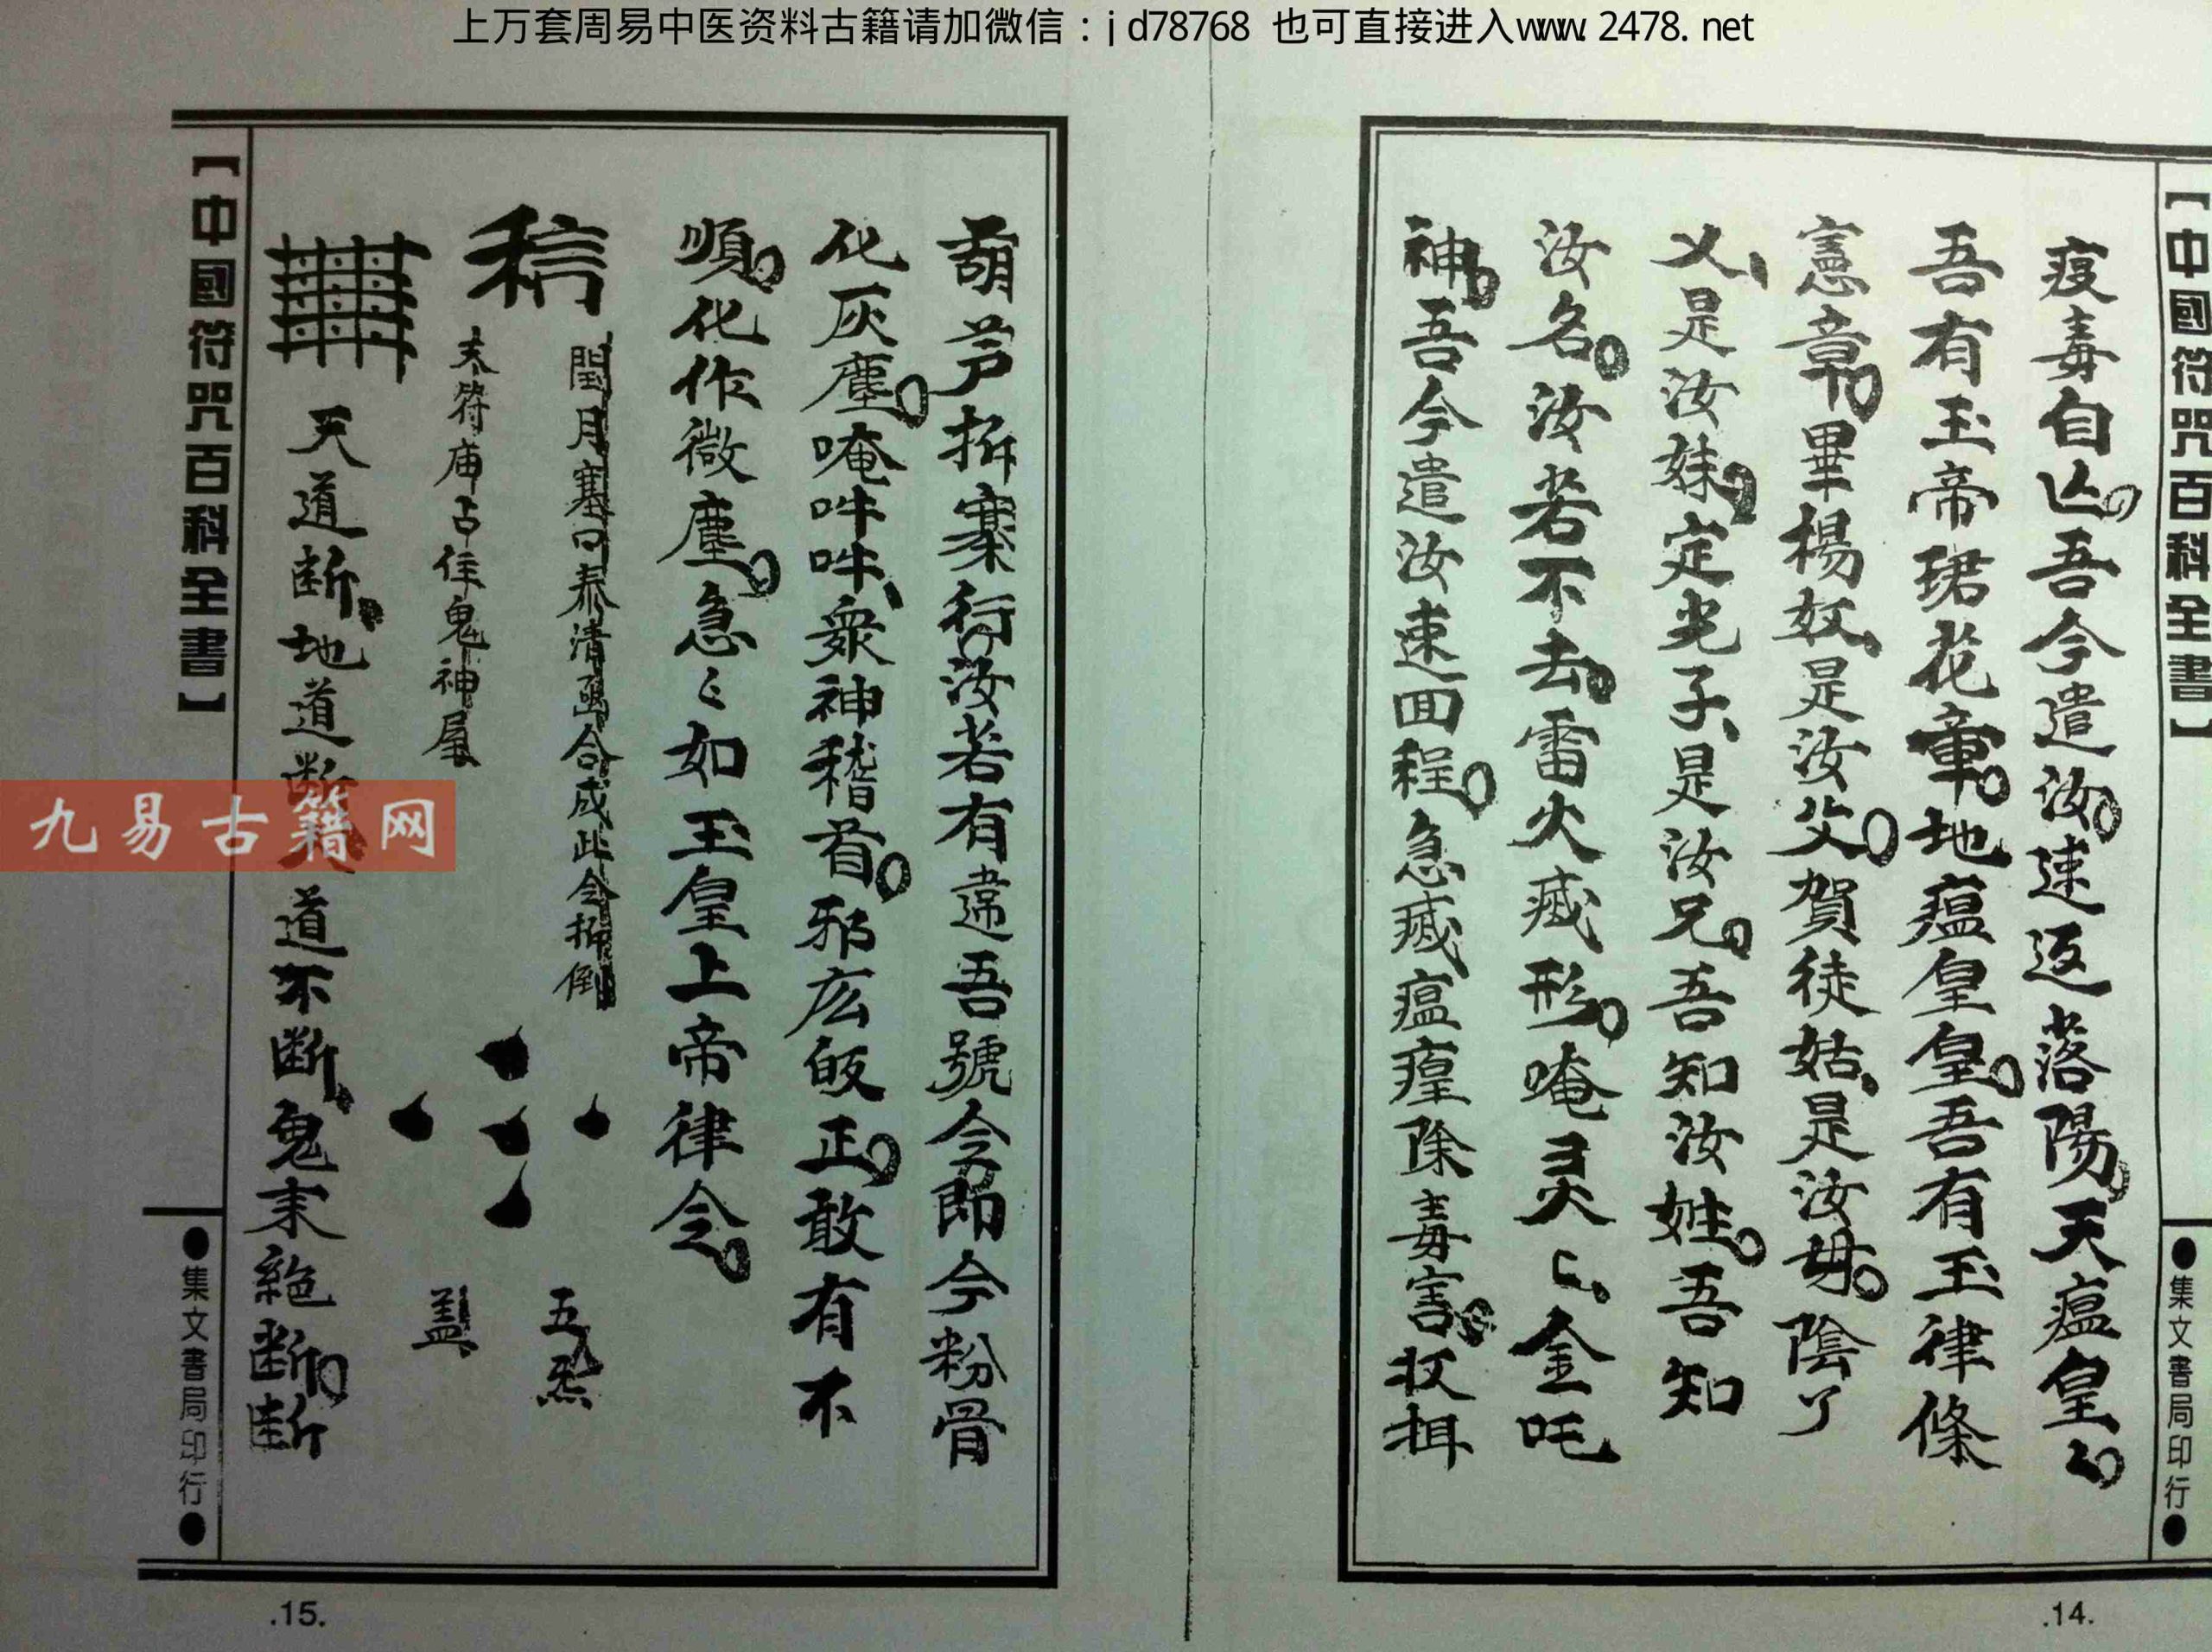 上万套周易中医资料古籍请加微信：jd78768 也可直接进入www.2478.net
【中國符咒百科全書】
●集文書局印行●
疫毒自亾吾今遣汝速返落陽天瘟皇
吾有玉帝珺花章地瘟皇皇吾有玉律條
憲章畢楊奴是汝父賀徒姑是汝母陰丫
乂是汝妹定光子是汝兄吾知汝姓吾知
汝名汝若不去雷火滅形唵灵〻金吒
神吾今遣汝速回程急滅瘟瘴除毒害收揖
.14.
葫芦拆寨行汝若有違吾號令即今粉骨
化灰塵唵吽吽衆神稽首邪庅皈正敢有不
順化作微塵急〻如玉皇上帝律令
閏月塞口泰清合成此令拆倒
五炁
符庙占住鬼神屋
盖
天道断地道断人道不断鬼来絕断断
【中國符咒百科全書】
●集文書局印行●
.15.
九易古籍网